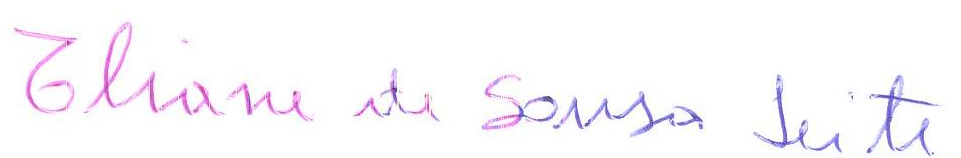 Eliane de Sousa Leite